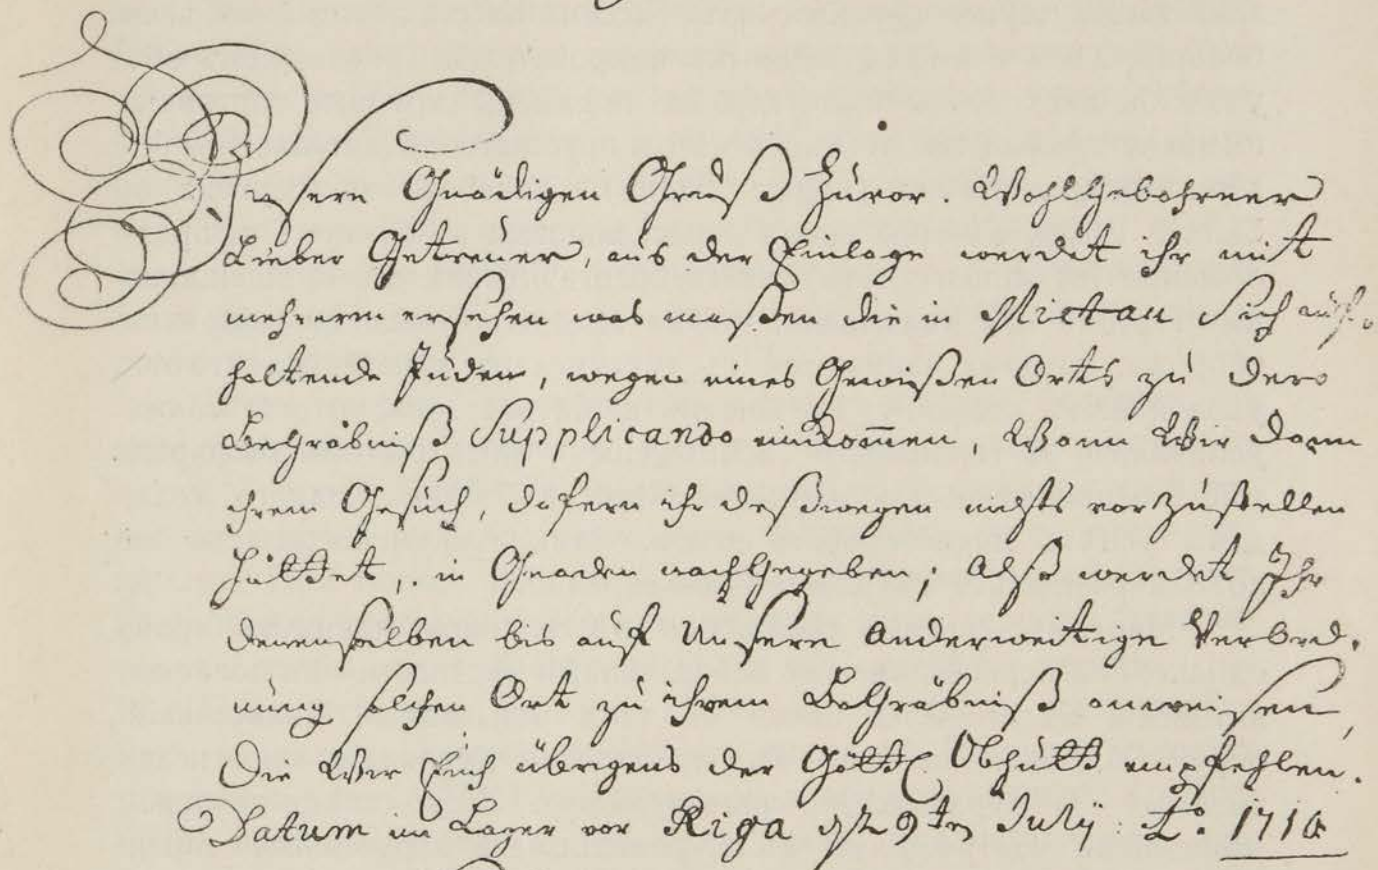 Unsern Gnädigen Gruß Zuvor. WohlGebohrner
Lieber Getreuer, aus der Einlage werdet ihr mit
mehrerm ersehen was maßen die in Mietau Sich auf-
haltende Juden, wegen eines Gewißen Orts zu dero
BeGräbniß Supplicando einkom̅en, Wann Wir dann
ihrem Gesuch, dafern ihr deßwegen nichts vorZustellen
hättet, in Gnaden nachGegeben; Alß werdet Ihr
denenselben bis auf Unsere Anderweitige VerOrd-
nung solchen Ort zu ihrem BeGräbniß anweisen,
Die Wir Euch übrigens der Göttl. Obhutt empfehlen.
Datum im Lager vor Riga 9ten July: Ao. 1710